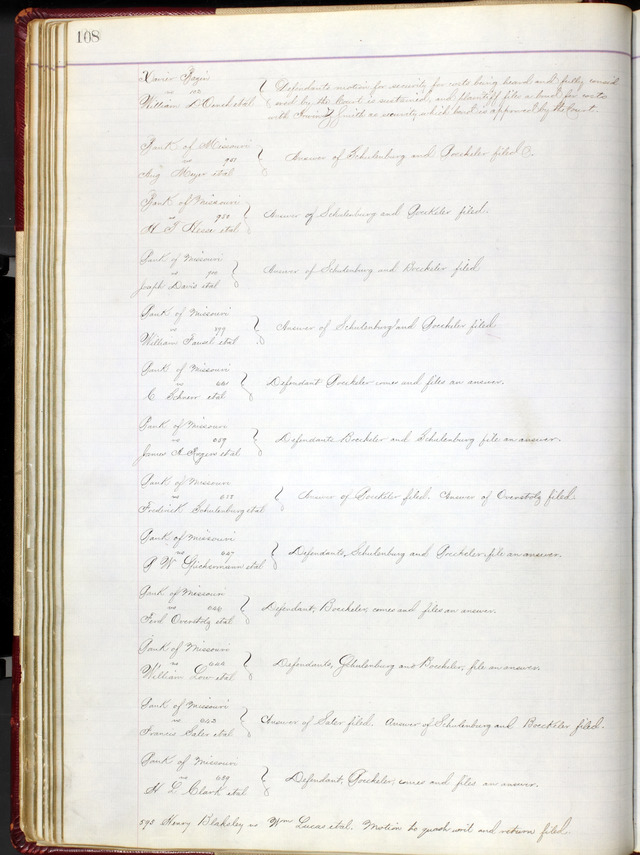 108
Xavier
vs
William et al
Defendants motion for security for costs being heard and fully consid
ered by the Court is sustained, and plaintiff files a bond for costs
with Smith as security which bond is approved by the Court.
Bank of Missouri
vs
Aug Meyer et al
Answer of Schulenburg and Boeckeler filed
Bank of Missouri
vs 950
H Hesse et al
Answer of Schulenburg and Boeckeler filed.
Bank of Missouri
vs
Joseph Davis et al
Answer of Schulenburg and Boeckeler filed
Bank of Missouri
vs 899
William et al
Answer of Schulenburg and Boeckeler filed
Bank of Missouri
vs
C et al
Defendant Boeckeler comes and files an answer.
Bank of Missouri
vs 659
James A Rogers et al
Defendants Boeckeler and Schulenburg file an answer.
Bank of Missouri
vs
Frederick Schulenburg et al
Answer of Boeckeler filed. Answer of Overstolz filed
Bank of Missouri
vs
P W et al
Defendants, Schulenburg and Boeckeler, file an answer.
Bank of Missouri
vs
Ferd Overstolz et al
Defendant, Boeckeler, comes and files an answer.
Bank of Missouri
vs
William Low et al
Defendants, Schulenburg and Boeckeler, file an answer.
Bank of Missouri
vs
Francis Sater et al
Answer of Sater filed. Answer of Schulenburg and Boeckeler filed.
Bank of Missouri
vs
H L Clark et al
Defendant, Boeckeler, comes and files an answer.
593 Henry Blakeley vs Wm Lucas et al. Motion to quash writ and return filed